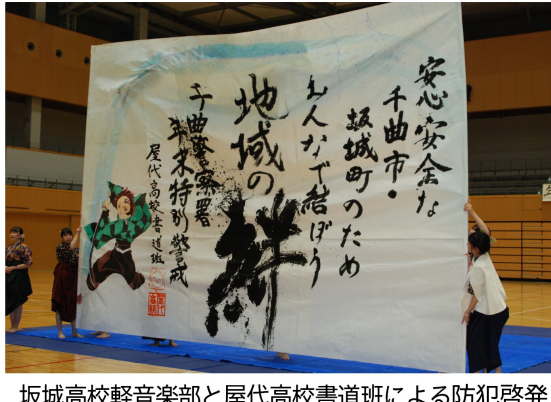 安心安全な
千曲市・
坂城町のため
みんなで結ぼう
地域の
絆
千曲警察署
年末特別警戒
屋代高校書道班
坂城高校軽音楽部と屋代高校書道班による防犯啓発